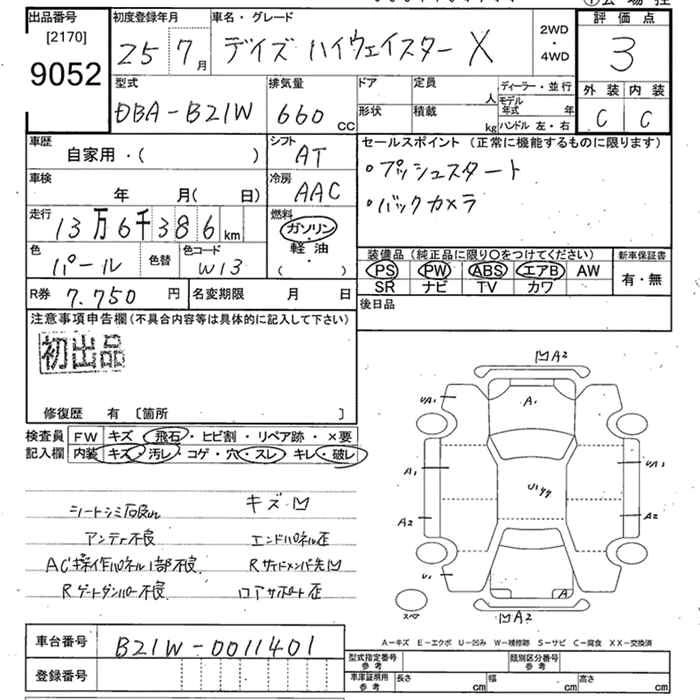 出品番号
[2170]
9052
初度登録年月
25 7 月
車名・グレード
デイズ ハイウェイスター X
2WD
・
4WD
評 価 点
3
外 装 内 装
C C
型式
DBA-B21W
排気量
660 cc
ドア
形状
定員
人
積載
kg
ディーラー・並 行
モデル年式 年
ハンドル 左・右
車歴
自家用・( )
シフト
AT
車検
年 月( 日)
冷房
AAC
走行
13万6千386 km
燃料
ガソリン
軽 油
( )
色
パール
色替
色コード
W13
R券 7.750 円
名変期限 月 日
セールスポイント (正常に機能するものに限ります)
・プッシュスタート
・バックカメラ
装備品 (純正品に限り〇をつけてください)
新車保証書
PS PW ABS エアB AW
SR ナビ TV カワ
有・無
後日品
注意事項申告欄(不具合内容等は具体的に記入して下さい)
初出品
修復歴 有 〔箇所 〕
検査員
記入欄
FW キズ・飛石・ヒビ割・リペア跡・×要
内装 キズ・汚レ・コゲ・穴・スレ・キレ・破レ
キズ凹
シートシミ
アンテナ不良
エンドパネル歪
AC操作パネル1部不良
Rサイドメンバー先凹
Rゲートダンパー不良
ロアサポート歪
凹A2
UA1
A1
A1
UA1
U1
A2
A2
U1
A
スペア
凹A2
A-キズ E-エクボ U-凹み W-補修跡 S-サビ C-腐食 XX-交換済
車台番号
B21W-0011401
登録番号
型式指定番号
参 考
類別区分番号
参 考
車庫証明用
参 考
長さ cm
幅 cm
高さ cm